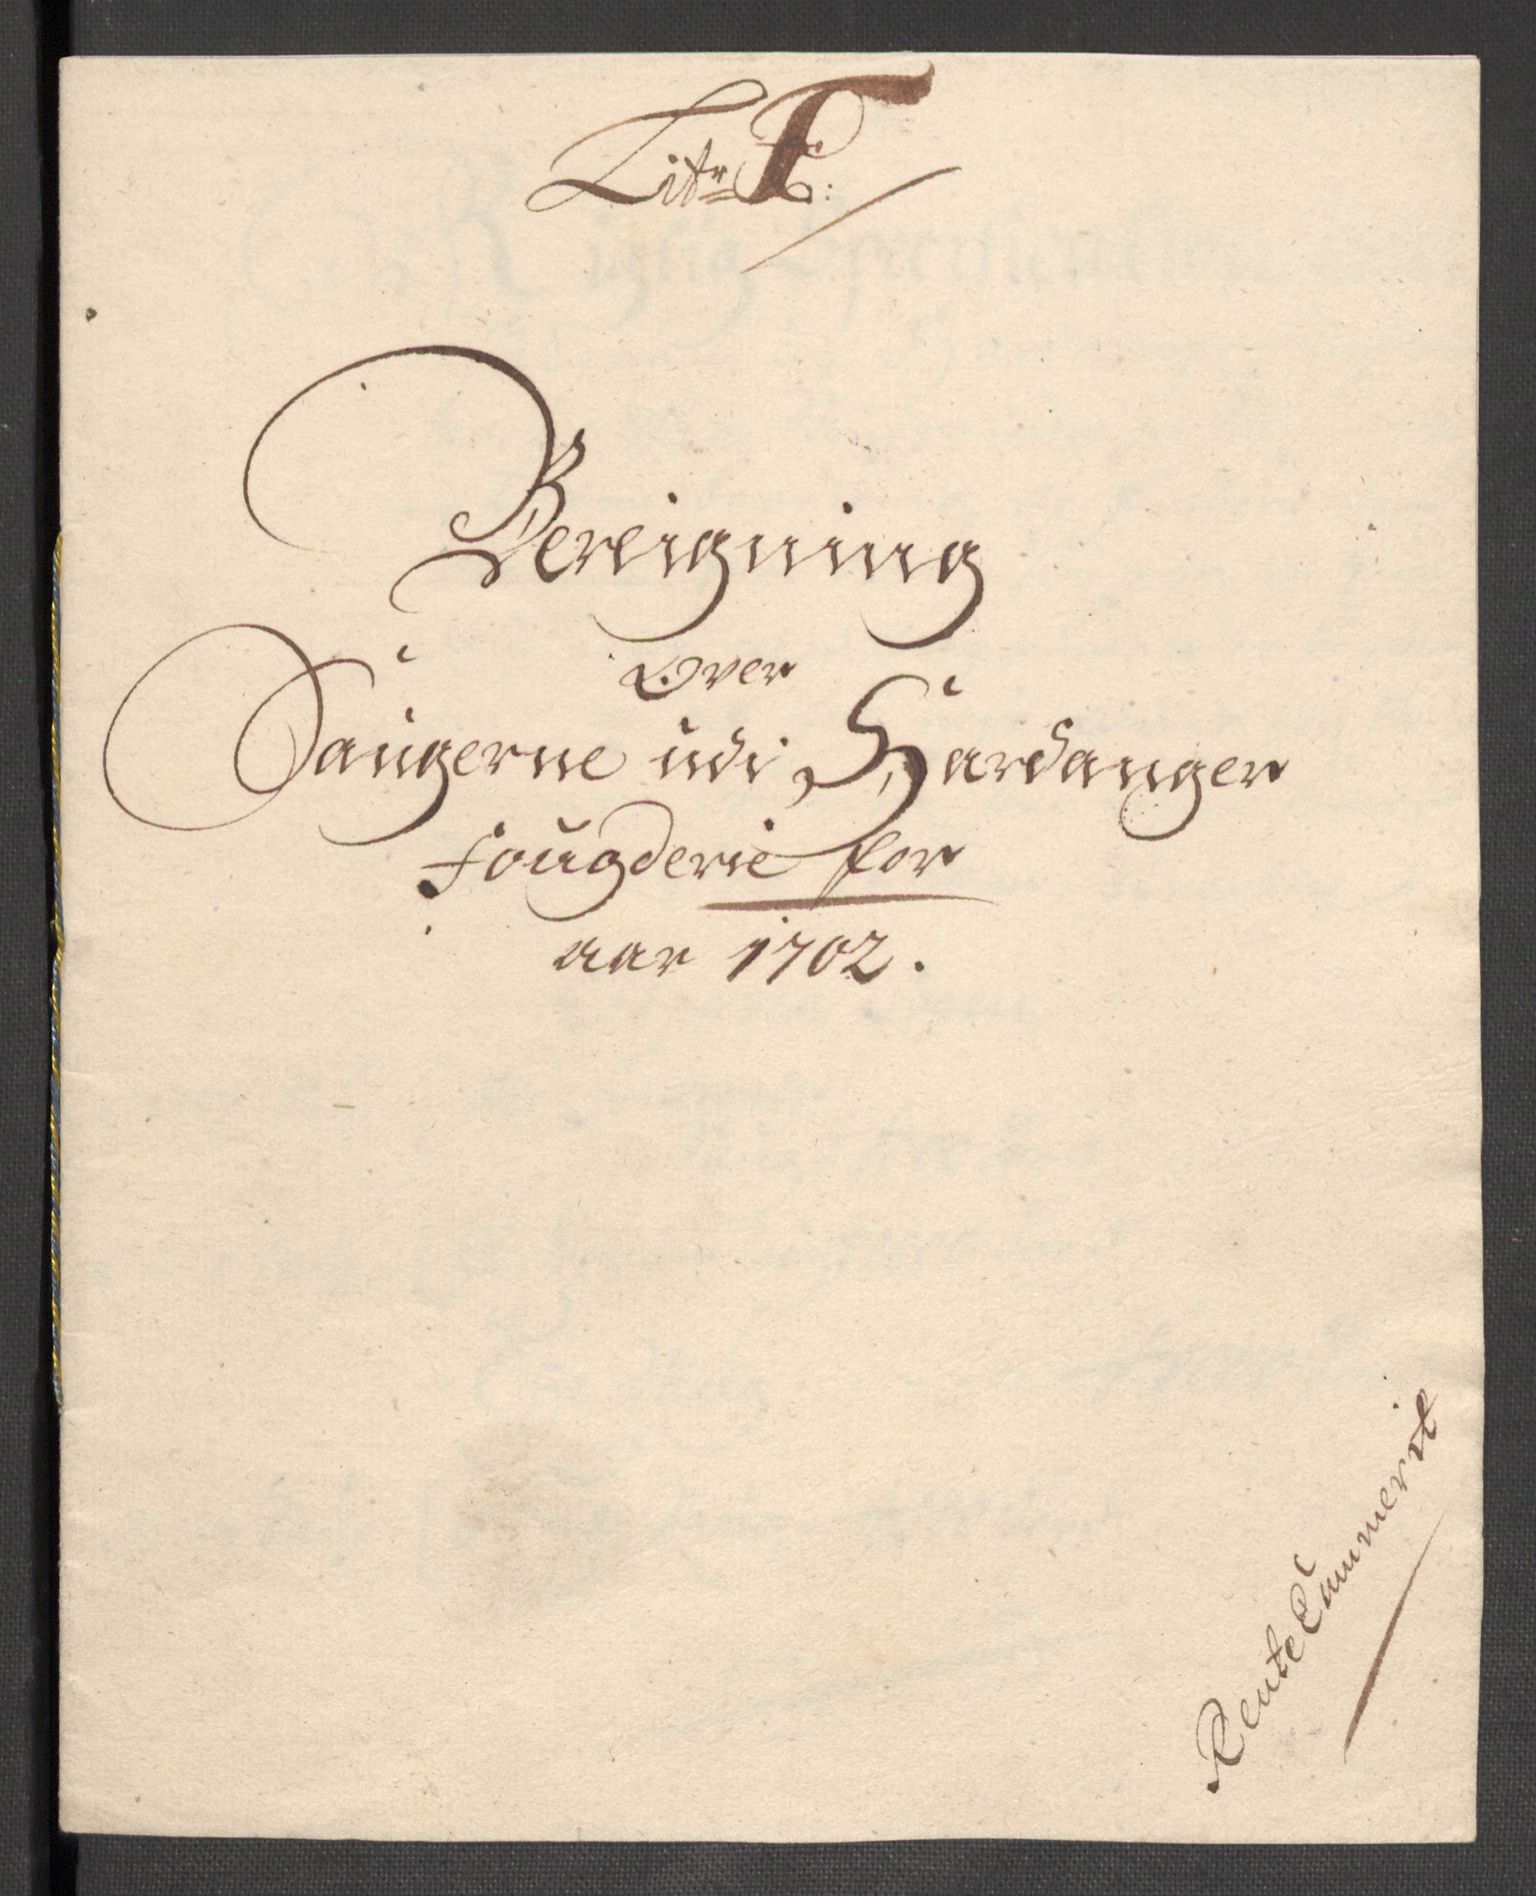 Litr F:
Bereigning
Over
Saugerne udi Hardanger
fougderie for
aar 1702.
Rente Cammerit